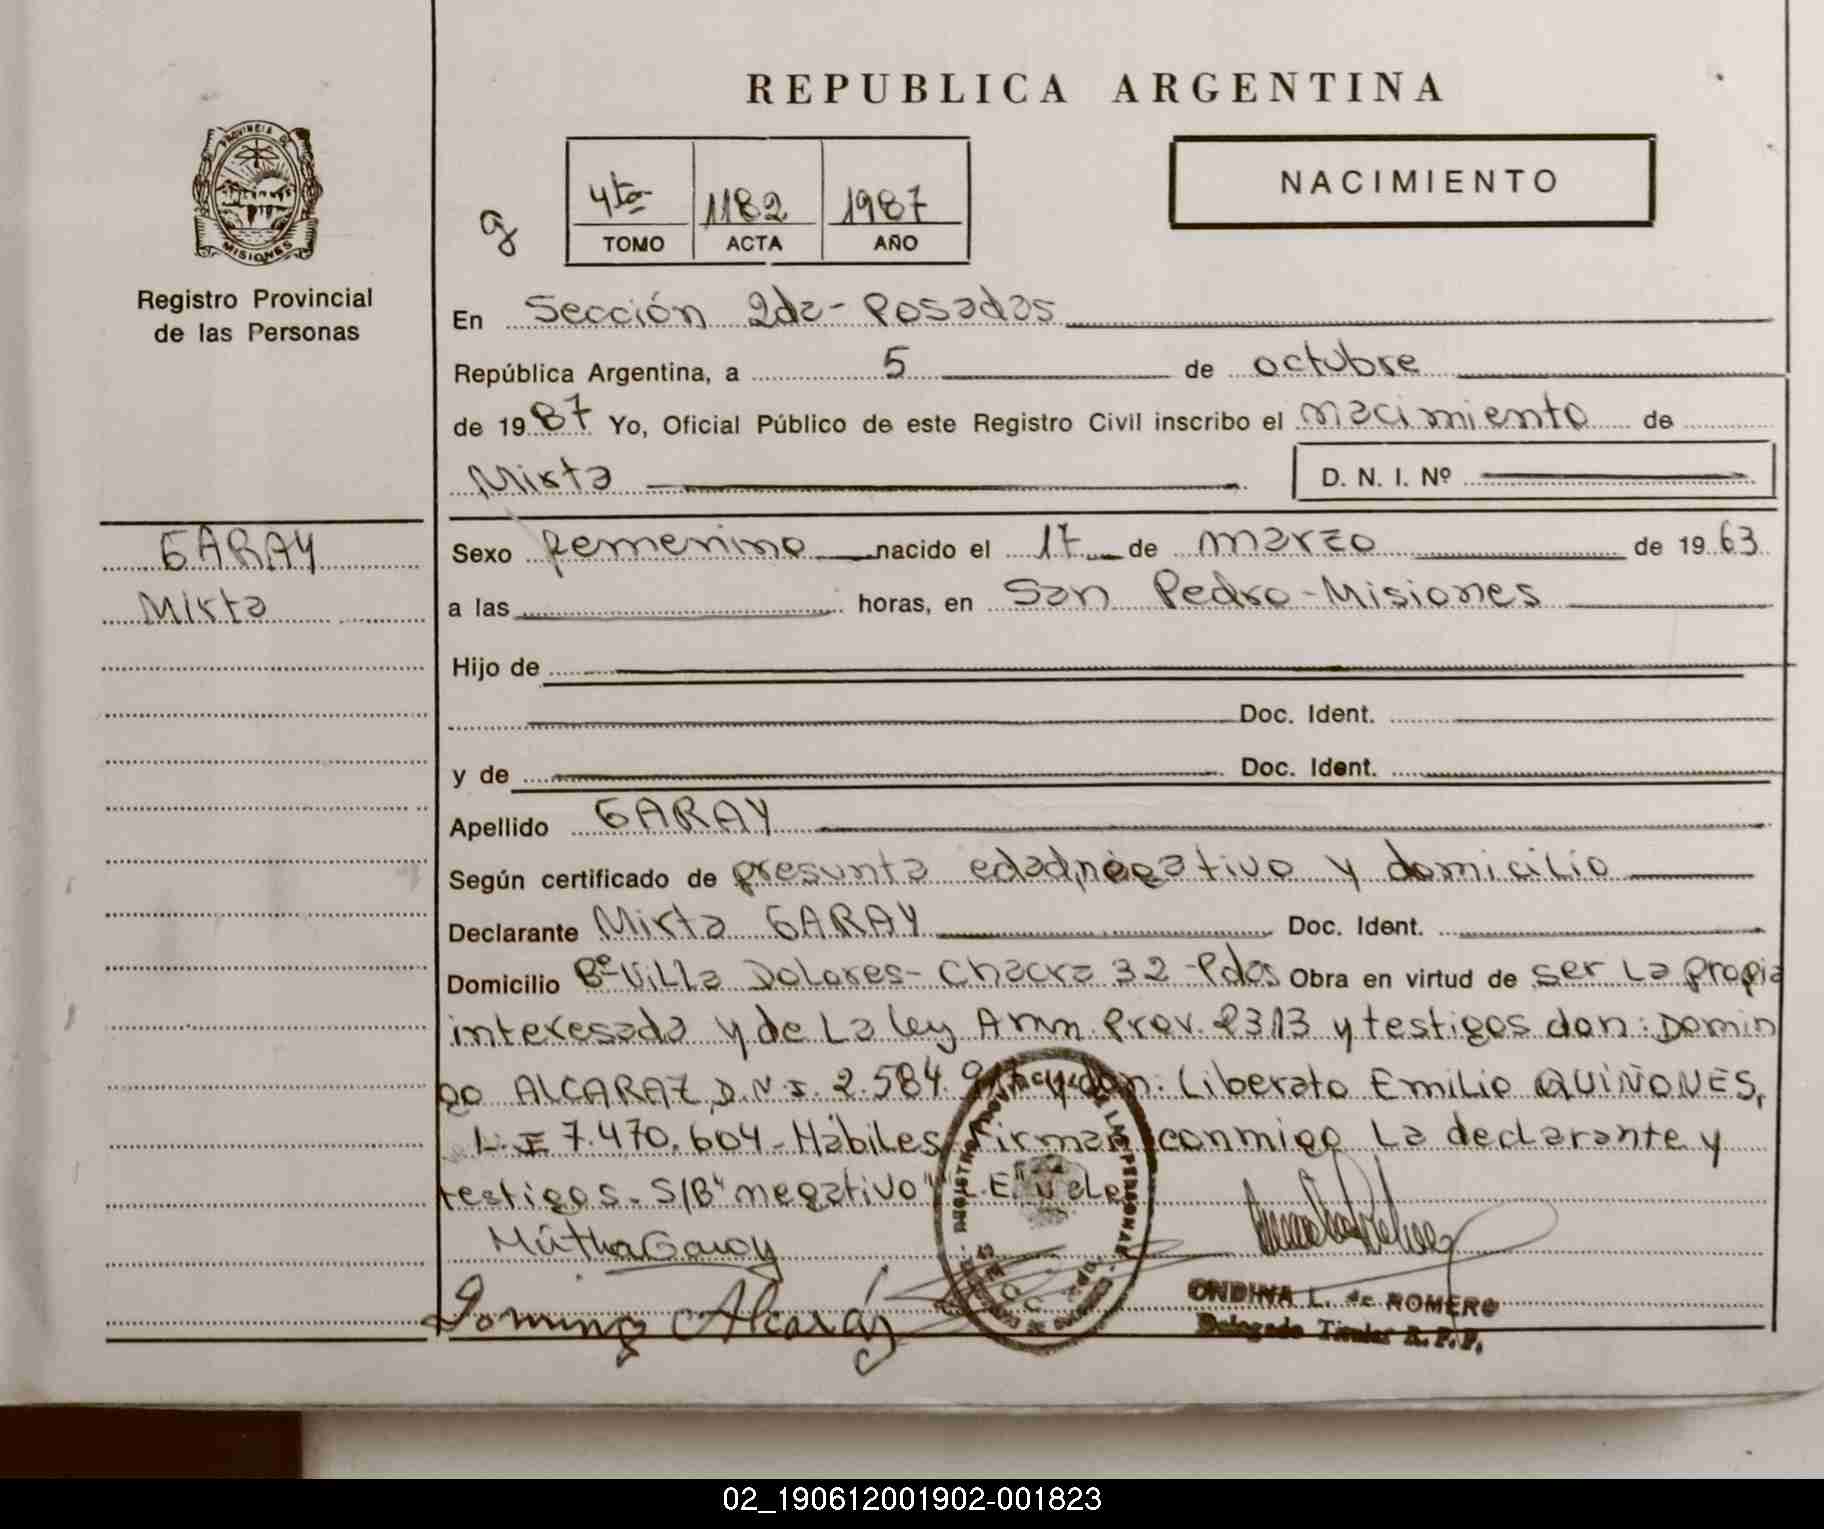 REPUBLICA ARGENTINA
PROVINCIA DE
MISIONES
Registro Provincial
de las Personas
NACIMIENTO
g
4to 1182 1987
TOMO ACTA AÑO
En Sección 2da - Posadas
República Argentina, a 5 de octubre
de 19 87 Yo, Oficial Público de este Registro Civil inscribo el nacimiento de
Mirta D. N. I. Nº
GARAY
Mirta
Sexo femenino nacido el 17 de marzo de 19 63
a las horas, en San Pedro - Misiones
Hijo de
Doc. Ident.
y de Doc. Ident.
Apellido GARAY
Según certificado de presunta edad, negativo y domicilio
Declarante Mirta GARAY Doc. Ident.
Domicilio Bº Villa Dolores - Chacra 32 - Pdas Obra en virtud de ser la propia
interesada y de la ley Amn. Prov. 2313 y testigos don: Domin
go ALCARAZ, D.N.I. 2.584. y don: Liberato Emilio QUIÑONES,
L.E 7.470.604 - Hábiles firman conmigo la declarante y
testigos. S/B "negativo" L.E" Vale
Mirtha Garay
Domingo Alcaráz
ONDINA L. de ROMERO
Delegado Titular R.P.P.
02_190612001902-001823